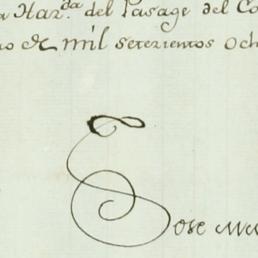 a Haz.da del Pasage del Co
ño de mil setezientos och
Jose M